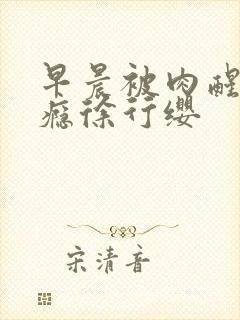 早晨被肉醒
瘾徐行缨
宋清音